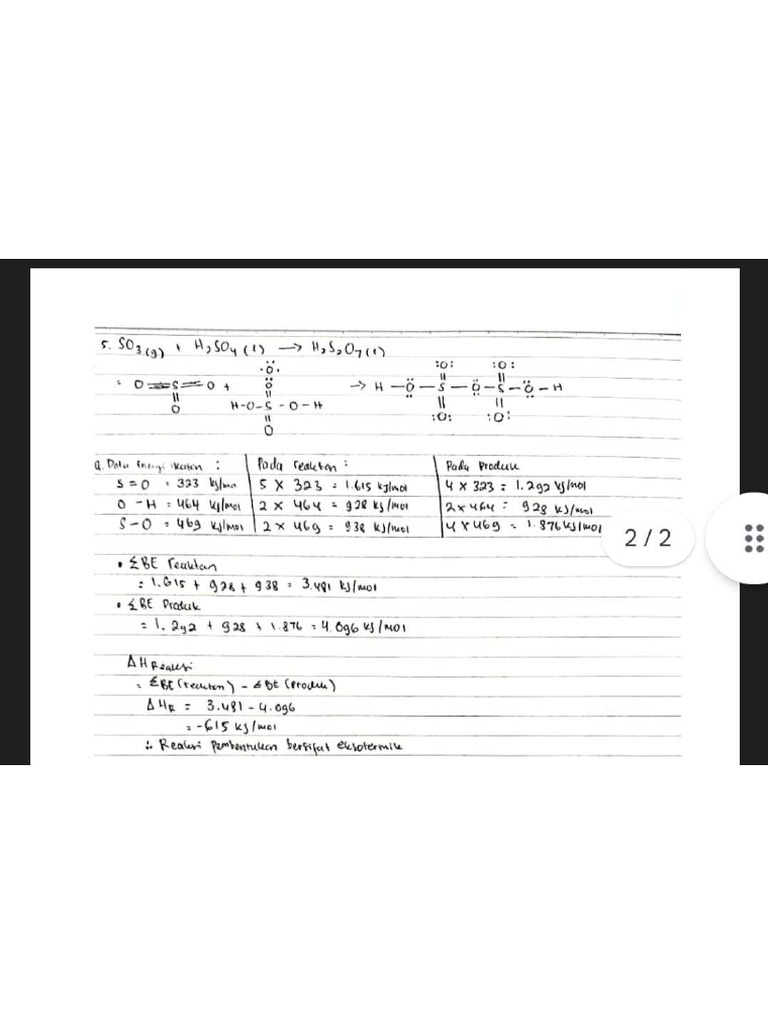 5. SO3(g) + H2SO4(l) → H2S2O7(l)
= O=S=O + → H–O–S–O–S–O–H
O :O: :O:
H–O–S–O–H
O :O: :O:
a. Data Energi ikatan : Pada reaktan : Pada Produk
S=O = 323 kJ/mol 5 x 323 = 1.615 kJ/mol 4 x 323 = 1.292 kJ/mol
O–H = 464 kJ/mol 2 x 464 = 928 kJ/mol 2 x 464 = 928 kJ/mol
S–O = 469 kJ/mol 2 x 469 = 938 kJ/mol 4 x 469 = 1.876 kJ/mol
2 / 2
• ΣBE reaktan
= 1.615 + 928 + 938 = 3.481 kJ/mol
• ΣBE Produk
= 1.292 + 928 + 1.876 = 4.096 kJ/mol
ΔH Reaksi
= ΣBE (reaktan) – ΣBE (produk)
ΔHR = 3.481 – 4.096
= -615 kJ/mol
∴ Reaksi pembentukan bersifat eksotermik